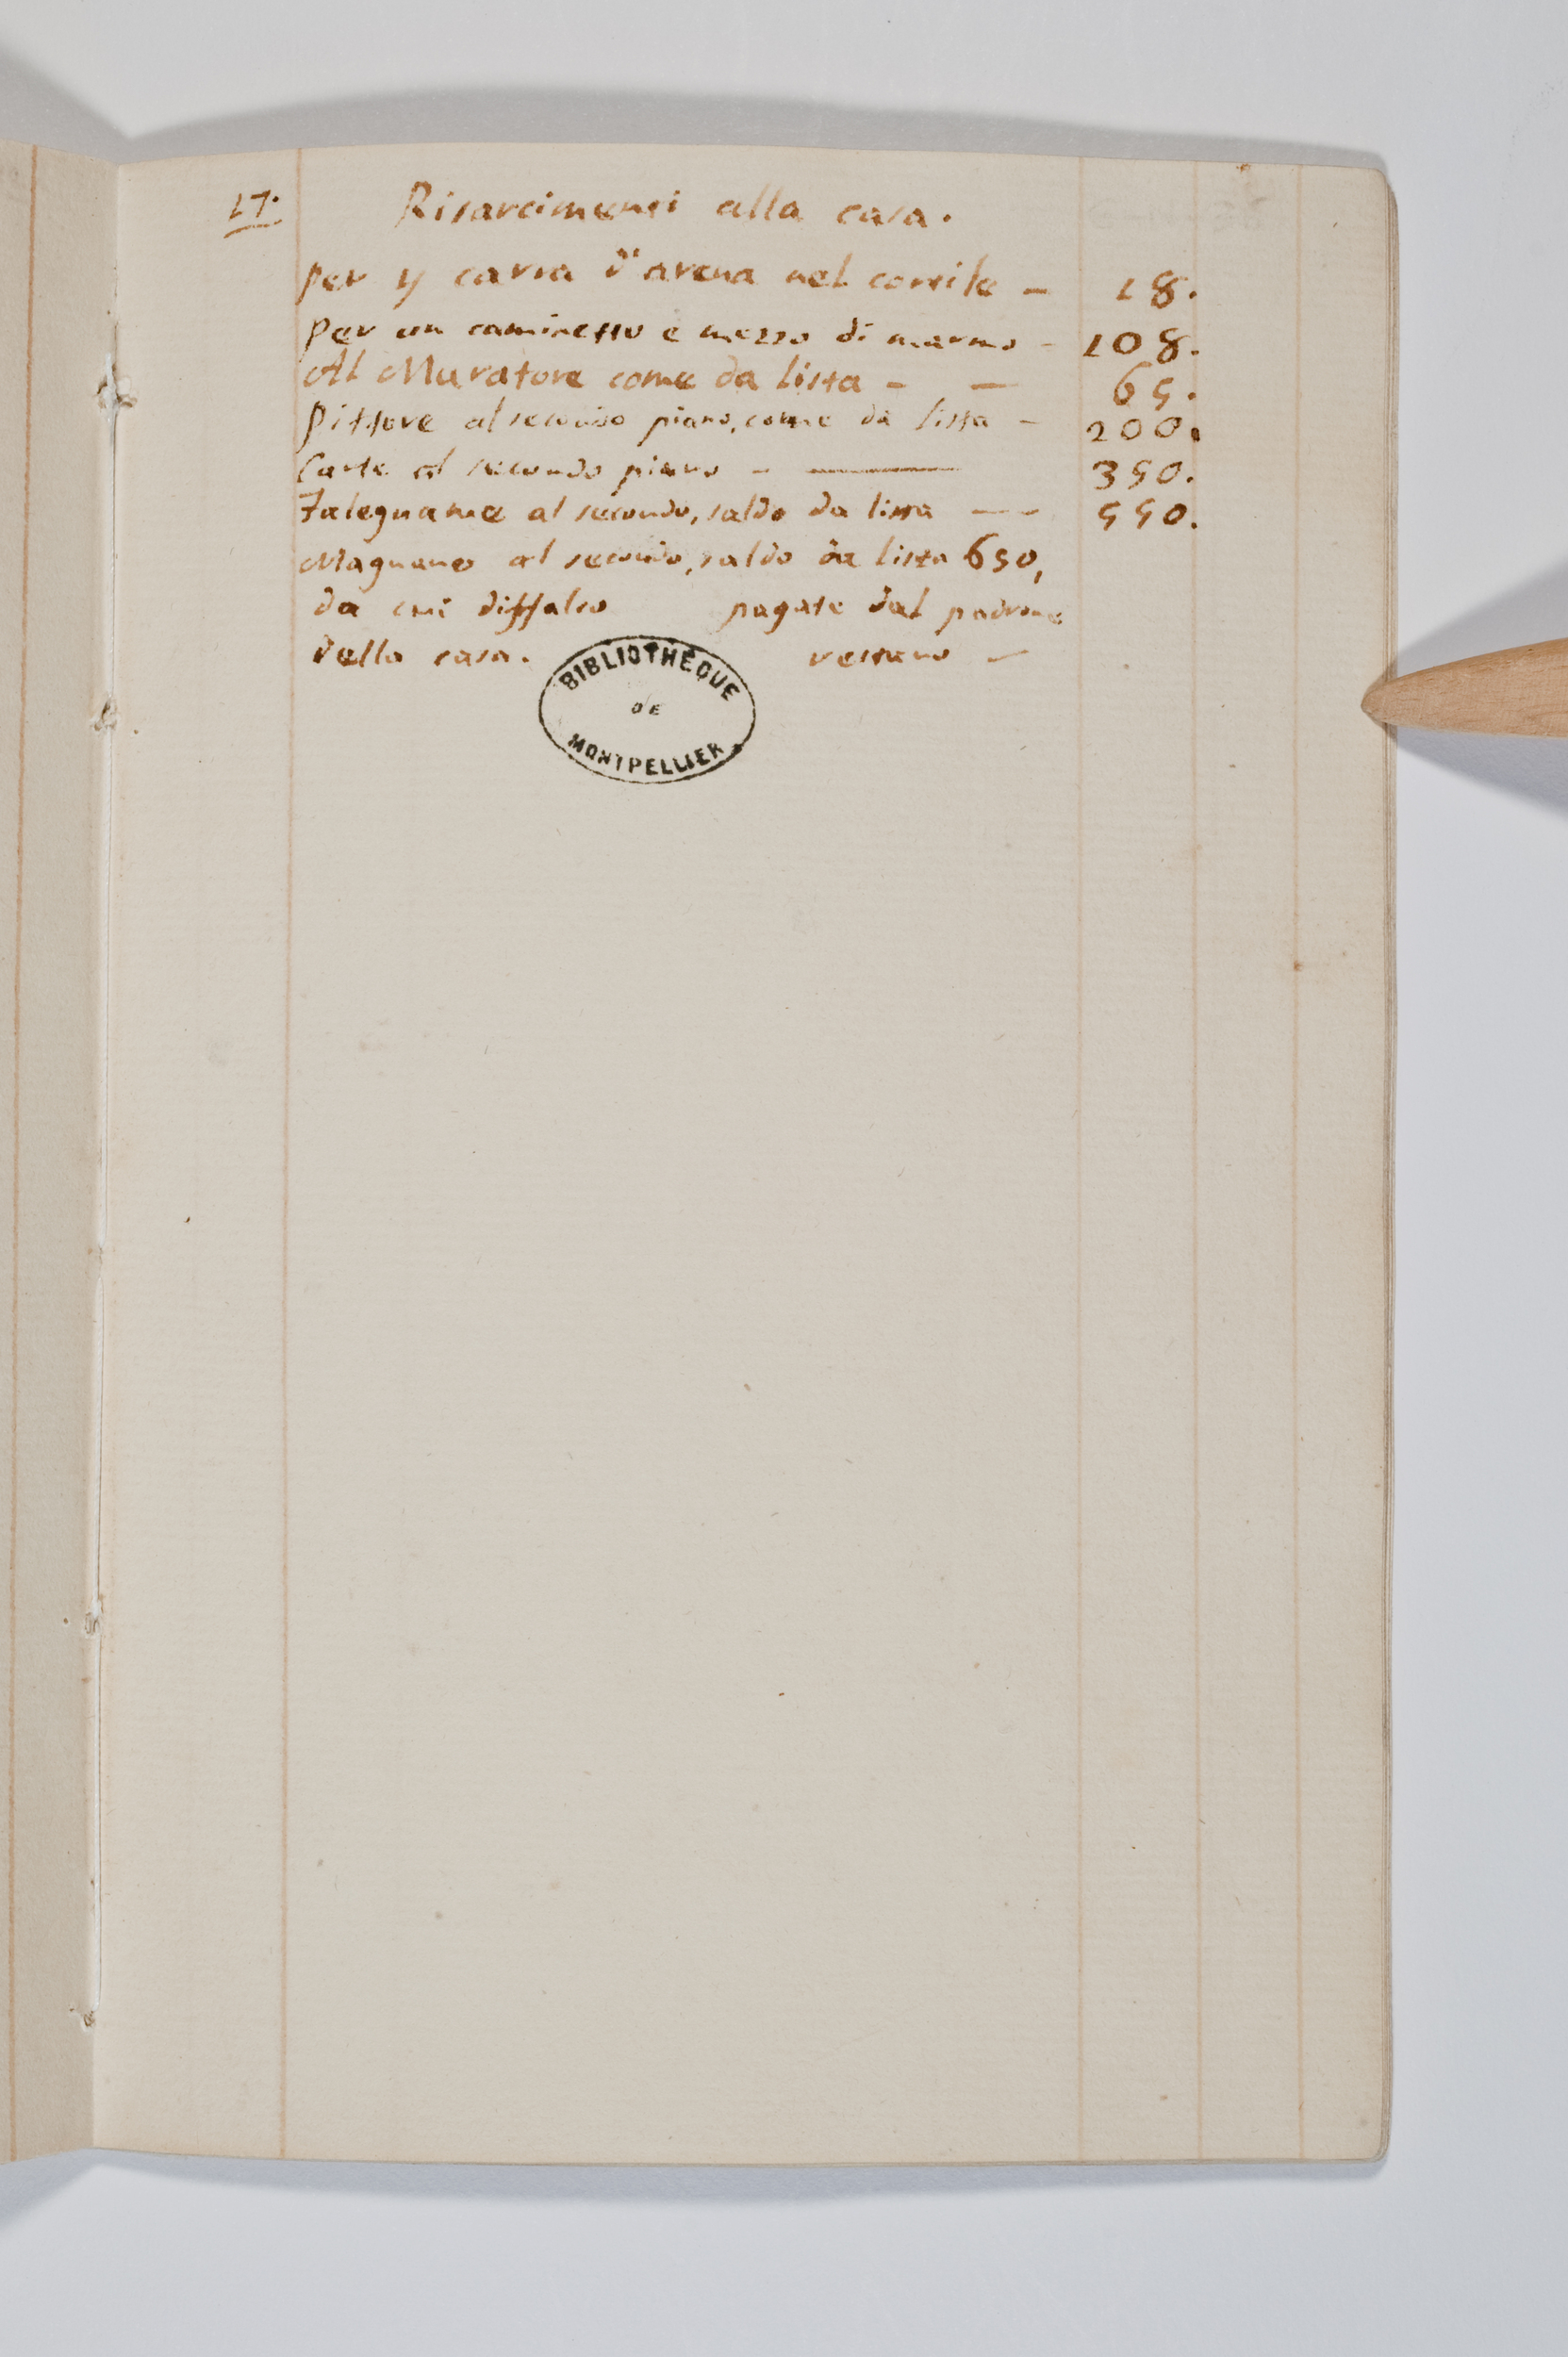 17.
Risarcimenti alla casa.
Per 4 carra d'arena nel cortile - 18.
Per un caminetto e mezzo di marmo - 108.
Al Muratore come da lista - - 65.
Pittore al secondo piano, come da lista - 200.
Carte al secondo piano - — 350.
Falegname al secondo, saldo da lista - - 550.
Magnano al secondo, saldo da lista 650,
da cui diffalco pagate dal padrone
della casa. restano -
BIBLIOTHÈQUE
DE
MONTPELLIER